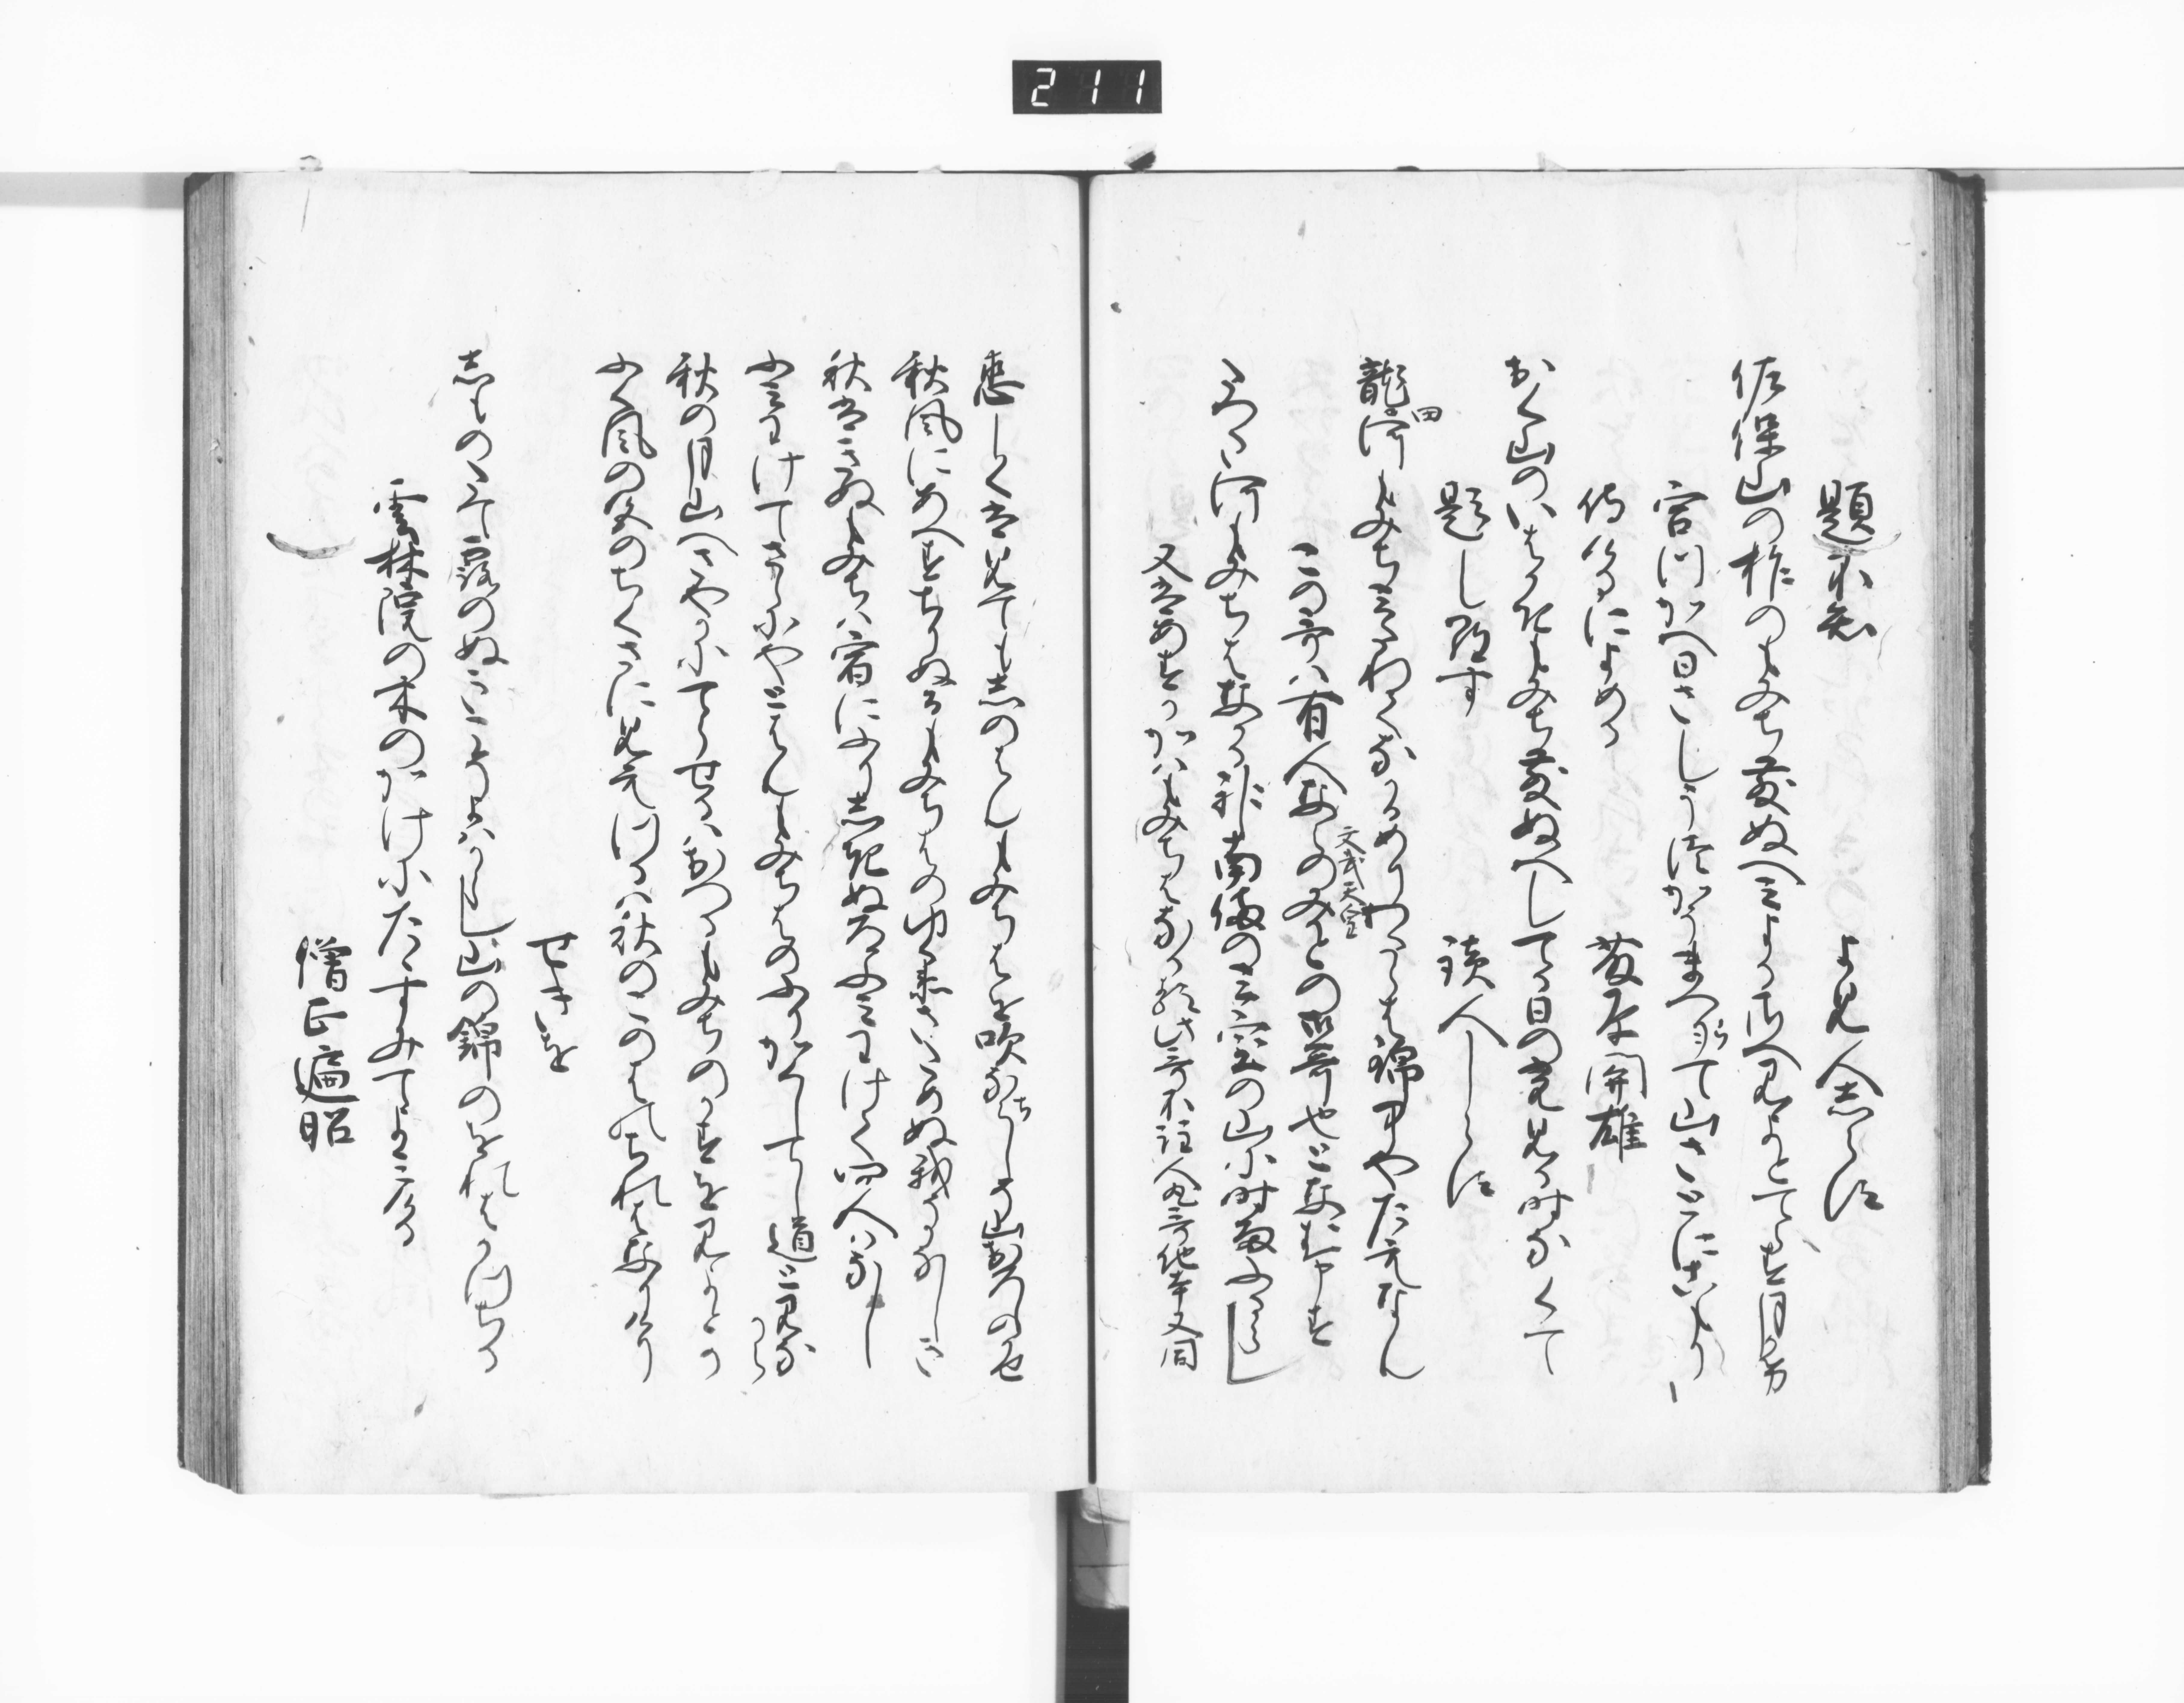 211
題不知 よみ人志らす
佐保山の柞のもみち散ぬへみよるさへ見よとてらす月影
宮つかへ日さしうつかうまつらて山さとにこもり
侍けるによめる 藤原関雄
おく山のいはかきもみち散ぬへしてる日の光見る時なくて
題しらす 読人しらす
龍田河もみちみたれてなかるめりわたらは錦中やたえなん
この哥は有人ならのみかとの御哥也となむ申す
文武天皇
たつた河もみちはなかる神南備のみ室の山に時雨ふるらし
又はあすかかはもみちはなかる 此哥不注人丸哥他本又同
恋しくは見てもしのはんもみちはを吹なちらしそ山おろしのかせ
秋風にあへすちりぬるもみちはのゆくゑさためぬ我そかなしき
秋はきぬもみちは宿にふりしきぬ道ふみわけてとふ人はなし
ふみわけてさらにやとはんもみちはのふりかくしてし道とみなから
秋の月山へさやかにてらせるはおつるもみちのかすを見よとか
ふく風の色のちくさに見えつるは秋のこのはのちれはなりけり
せきを
志ものたて露のぬきこそよはからし山の錦のをれはかつちる
雲林院の木のかけにたゝすみてよみける
僧正遍昭